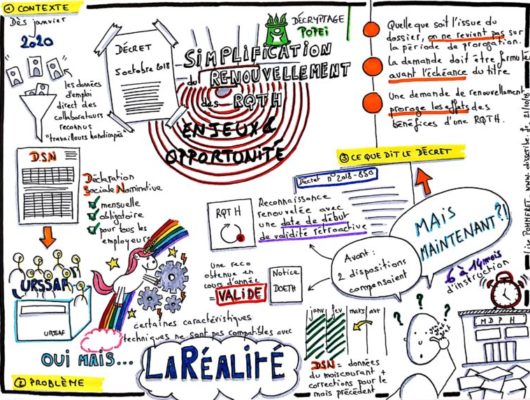 1 CONTEXTE
Dès janvier
2020
les données
d'emploi
direct des
collaborateurs
reconnus
"travailleurs handicapés"
DÉCRET
5 octobre 2018
DÉCRYPTAGE
POPEI
SIMPLIFICATION
du RENOUVELLEMENT
des RQTH
ENJEUX &
OPPORTUNITÉ
Quelle que soit l'issue du
dossier, on ne revient pas sur
la période de prorogation.
La demande doit être formulée
avant l'échéance du titre
Une demande de renouvellement
proroge les effets des
bénéfices d'une RQTH.
3 CE QUE DIT LE DÉCRET
DSN
Déclaration
Sociale Nominative
mensuelle
obligatoire
pour tous les
employeurs
URSSAF
URSSAF
OUI MAIS...
2 PROBLÈME
Décret n° 2018-850
RQTH
Reconnaissance
renouvelée avec
une date de début
de validité rétroactive
Avant:
2 dispositions
compensaient
une reco
obtenue en
cours d'année
VALIDE
Notice
DOETH
MAIS
MAINTENANT?!
6 à 14 mois
d'instruction
certaines caractéristiques
techniques ne sont pas compatibles avec
LA RÉALITÉ
janv fev mars avr
DSN = données
du mois courant +
corrections pour le
mois précédent
? ? ?
MDPH